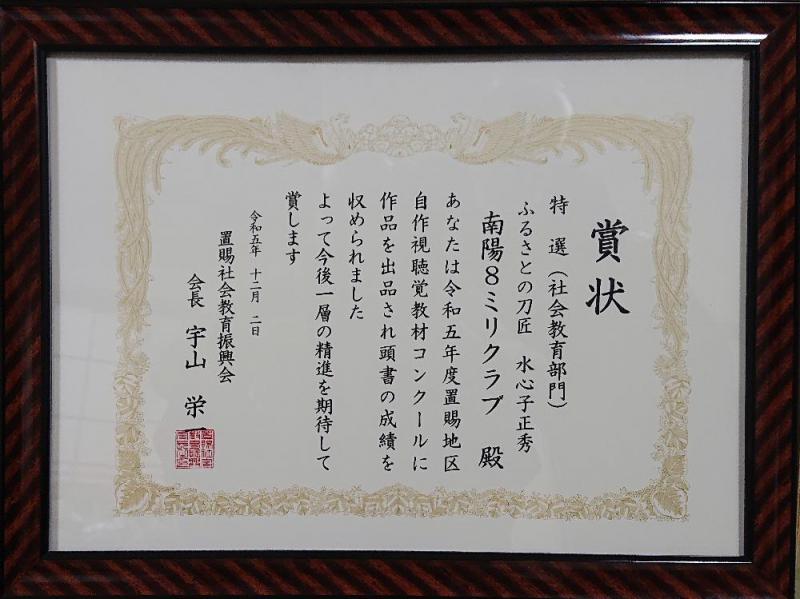 賞状
特 選（社会教育部門）
ふるさとの刀匠 水心子正秀
南陽８ミリクラブ 殿
あなたは令和五年度置賜地区
自作視聴覚教材コンクールに
作品を出品され頭書の成績を
収められました
よって今後一層の精進を期待して
賞します
令和五年 十二月 二日
置賜社会教育振興会
会長 宇山 栄一